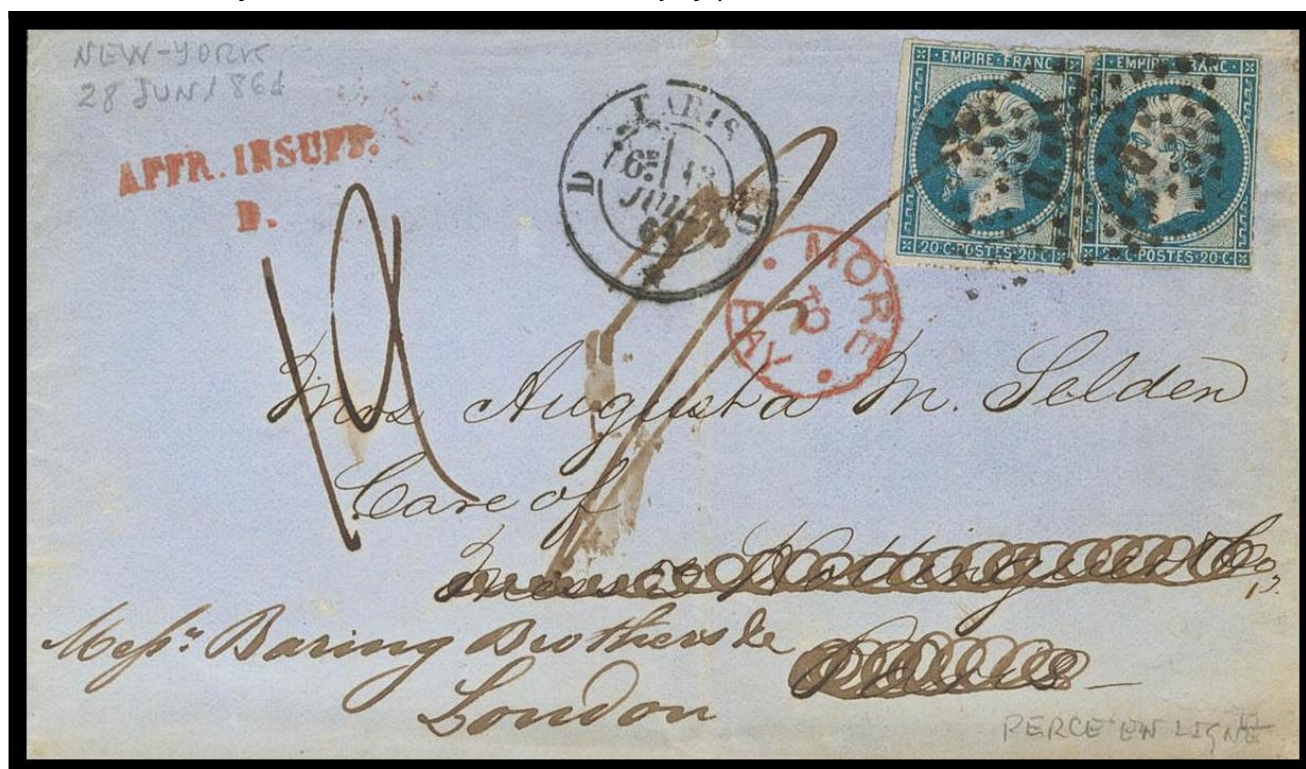 NEW-YORK
28 JUN 1864
AFFR. INSUFF.
D.
PARIS
6E
D
64
MORE
TO
PAY
EMPIRE FRANC
20 C POSTES 20 C
EMPIRE FRANC
20 C POSTES 20 C
Mrs Augusta M. Selden
Care of
Hottinguer & Co,
Paris
Messrs. Baring Brothers &c
London
PERCE EN LIGNE